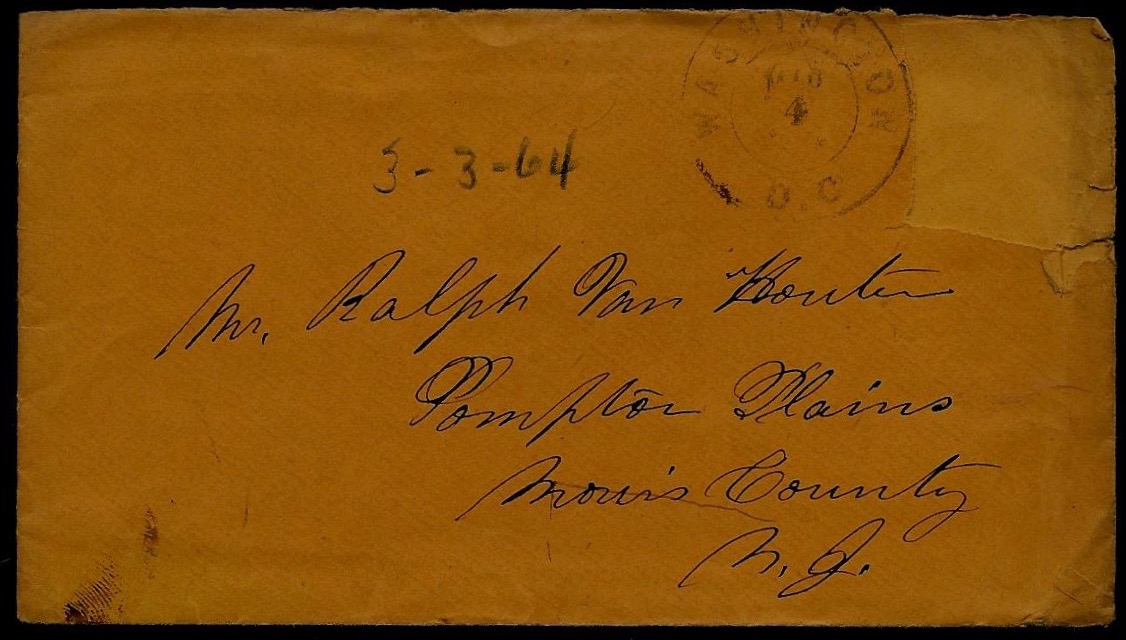 WASHINGTON
4
D.C
3-3-64
Mr. Ralph Van Houten
Pompton Plains
Morris County
N. J.